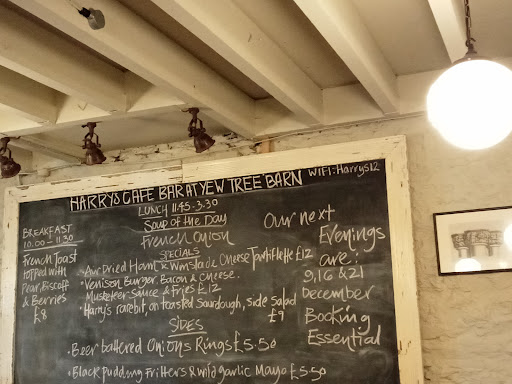 HARRY'S CAFE BAR AT YEW TREE BARN
WIFI: Harrys12
BREAKFAST
10.00 - 11.30
French Toast
topped with
Pear, Biscoff
& Berries
£8
LUNCH 11.45-3.30
Soup of the Day
French Onion
SPECIALS
• Air Dried Ham & Winslade Cheese Tartiflette £12
• Venison Burger. Bacon & cheese.
Musketeer Sauce & Fries £12
• Harry's rarebit on toasted Sourdough, side Salad
£9
SIDES
• Beer battered Onions Rings £5.50
• Black pudding Fritters & wild garlic Mayo £5.50
Our next
Evenings
are:
9, 16 & 21
December
Booking
Essential